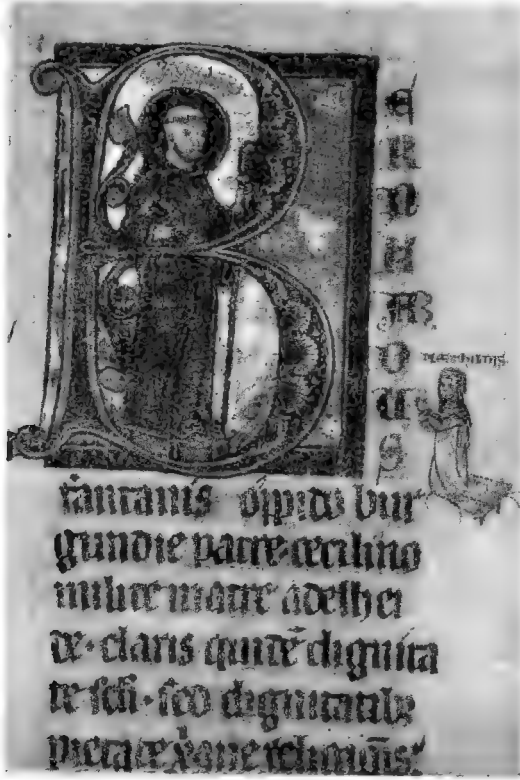 BERNARDUS
fontanis oppido bur
gundie patre tecelino
milite matre adelhei
de · claris quidē dignita
te scli · sed dignitatis
pietate xpane religionis